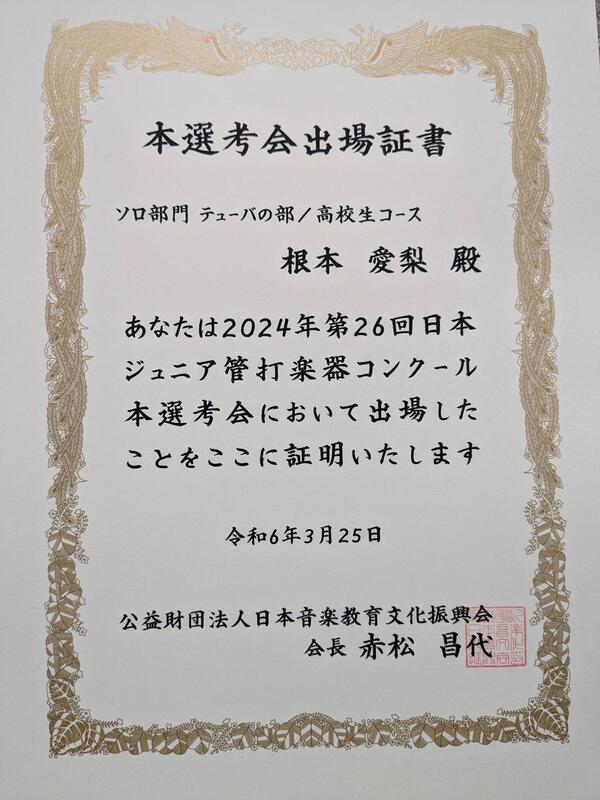 本選考会出場証書
ソロ部門 テューバの部／高校生コース
根本 愛梨 殿
あなたは2024年第26回日本
ジュニア管打楽器コンクール
本選考会において出場した
ことをここに証明いたします
令和6年3月25日
公益財団法人日本音楽教育文化振興会
会長 赤松 昌代